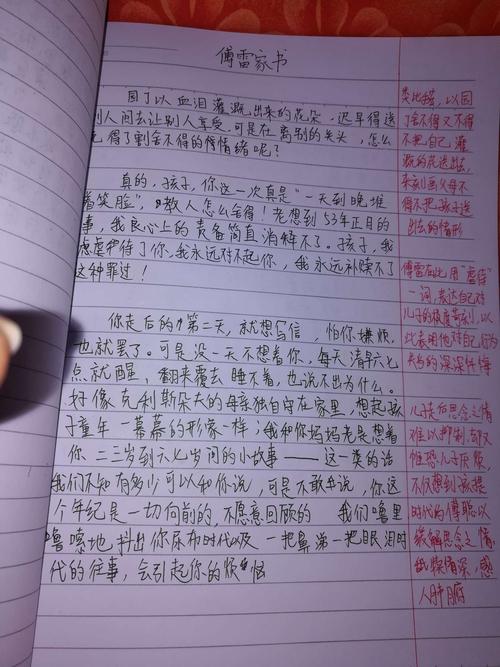 傅雷家书
园丁以血泪灌溉出来的花朵,迟早得送
到人间去让别人享受,可是在离别的关头,怎么
免得了割舍不得的情绪呢?
真的,孩子,你这一次真是“一天到晚堆
着笑脸”,教人怎么舍得!老想到53年正月的
事,我良心上的责备简直消释不了。孩子,我
虐待了你,我永远对不起你,我永远补赎不了
这种罪过!
你走后的第二天,就想写信,怕你嫌烦,
也就罢了。可是没一天不想着你,每天清早六七
点就醒,翻来覆去睡不着,也说不出为什么。
好像克利斯朵夫的母亲独自守在家里,想起孩
子童年一幕幕的形象一样;我和你妈妈老是想着
你二三岁到六七岁间的小故事——这一类的话
我们不知有多少可以和你说,可是不敢说,你这
个年纪是一切向前的,不愿意回顾的 我们噜里
噜嗦地抖出你尿布时代以及一把鼻涕一把眼泪时
代的往事,会引起你的烦恼
以园
丁舍不得又不得
不把自己灌
溉的花送出去,
来刻画父母不
得不把孩子送
出去的情形
傅雷在此用“虐待”
一词,表达自己对
儿子的极度苛刻,以
此表明他对自己行为
的深深忏悔
儿走后思念之情
难以抑制,却又
惟恐儿子厌烦,
不仅想到孩童
时代的傅聪以
缓解思念之情,
感
人肺腑